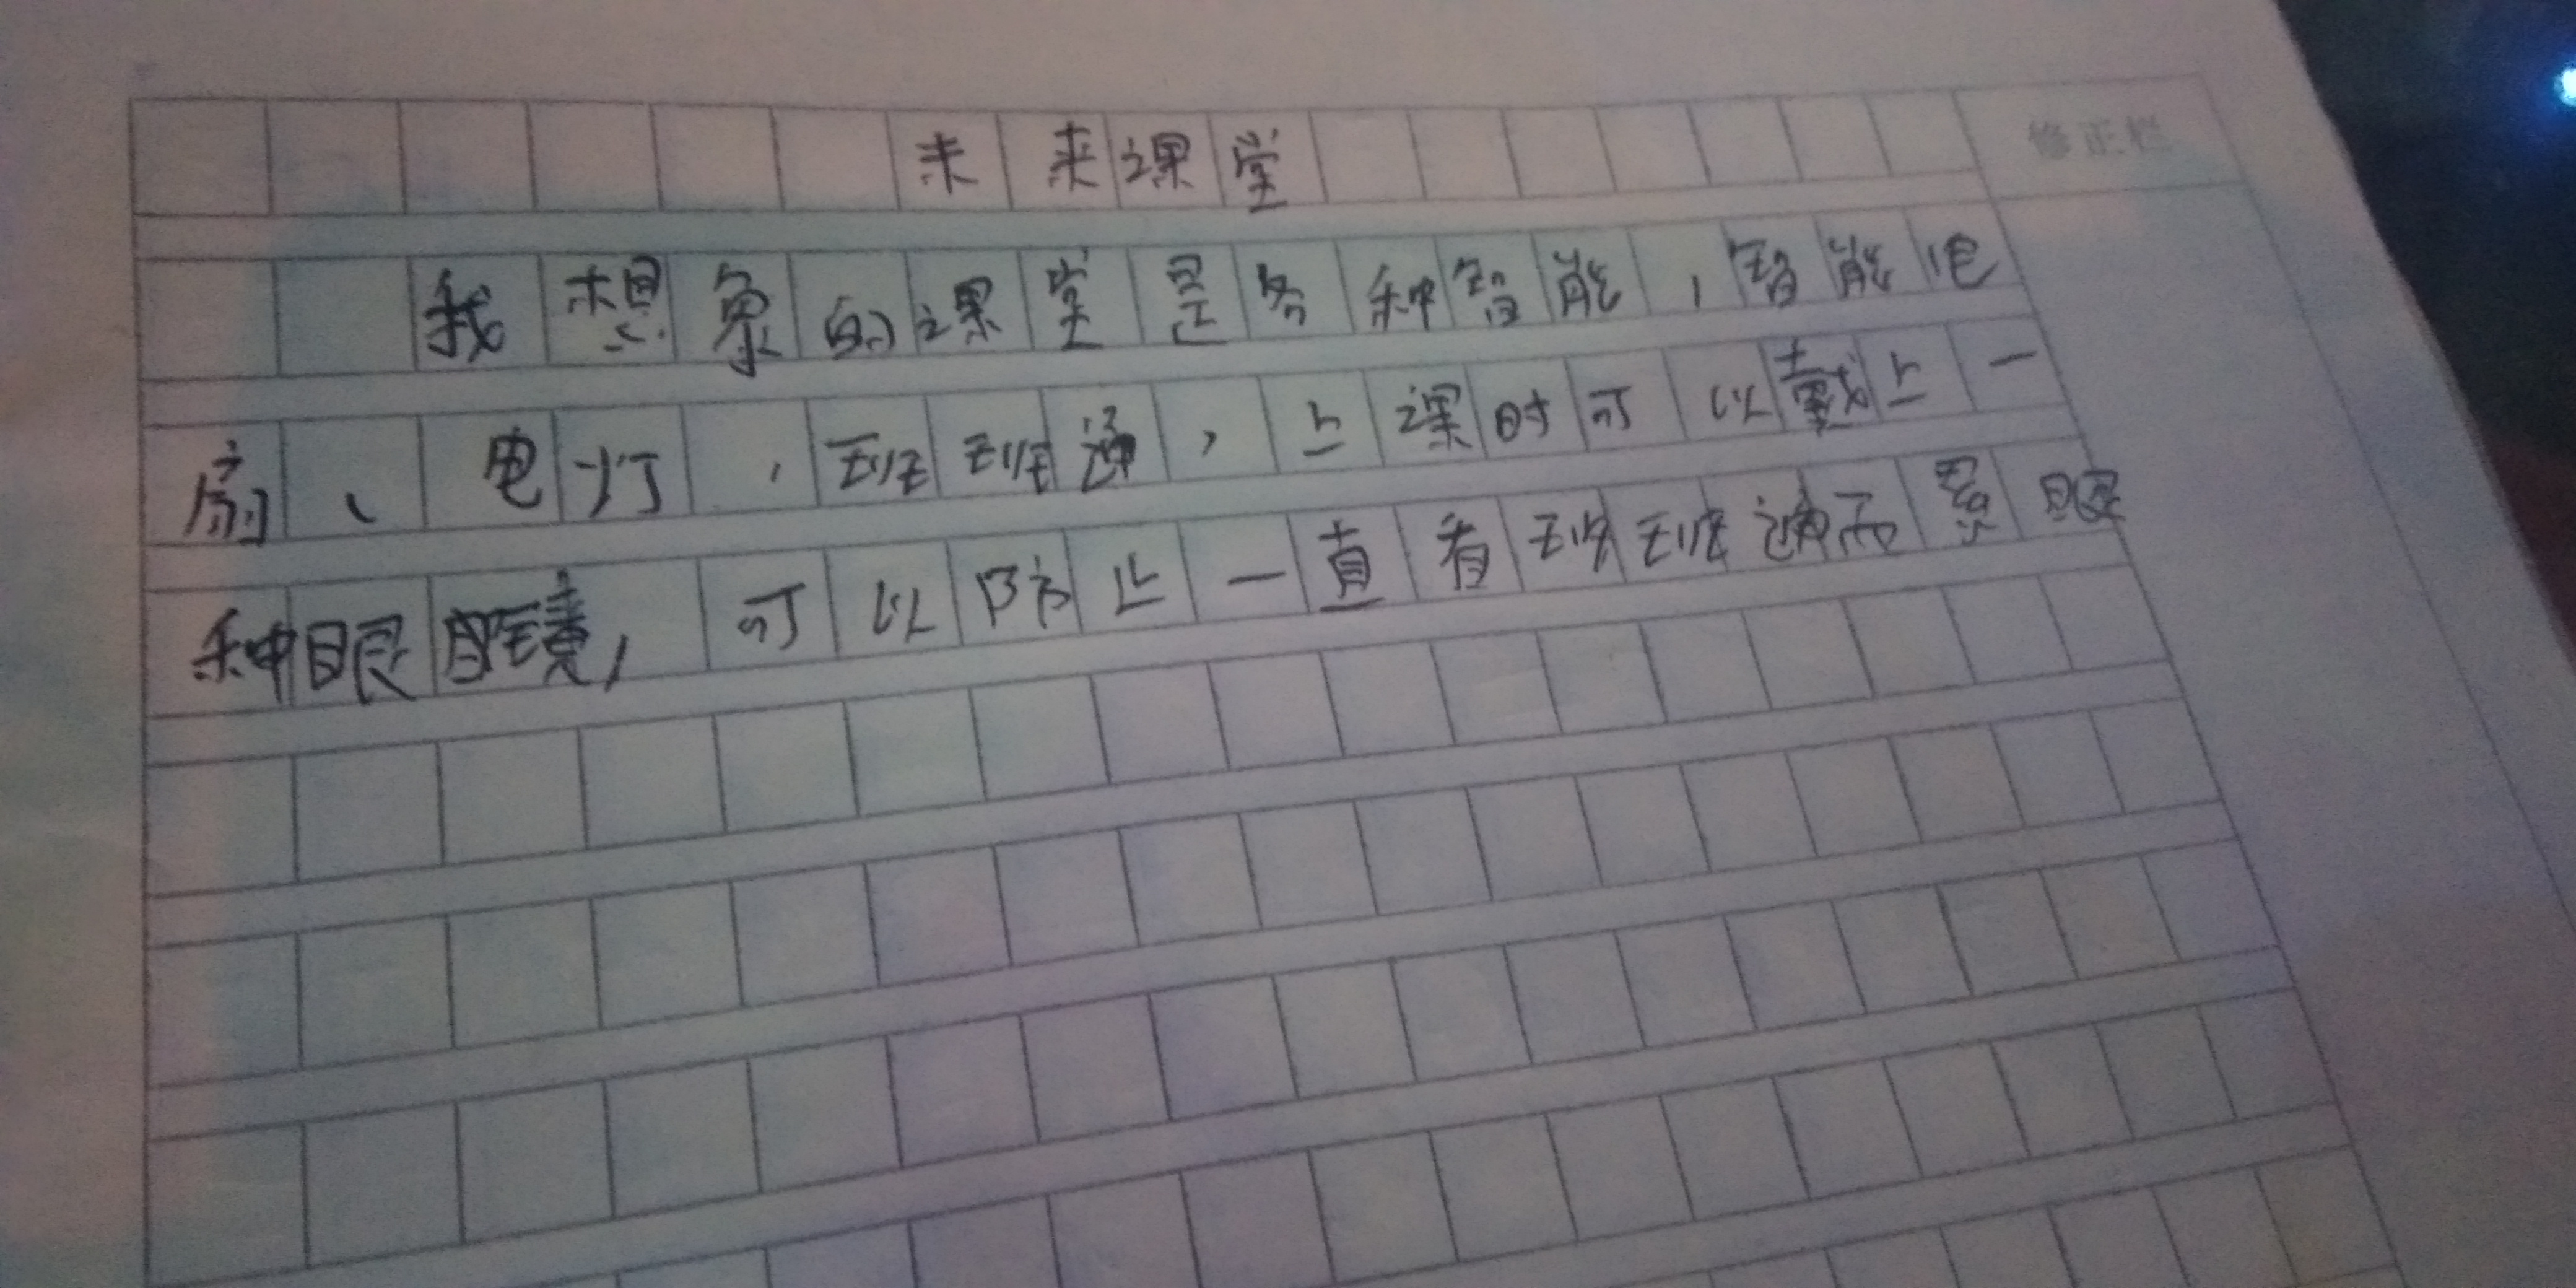 未来课堂
修正栏
我想象的课堂是各种智能，智能电
扇、电灯，班班通，上课时可以戴上一
种眼镜，可以防止一直看班班通而累眼